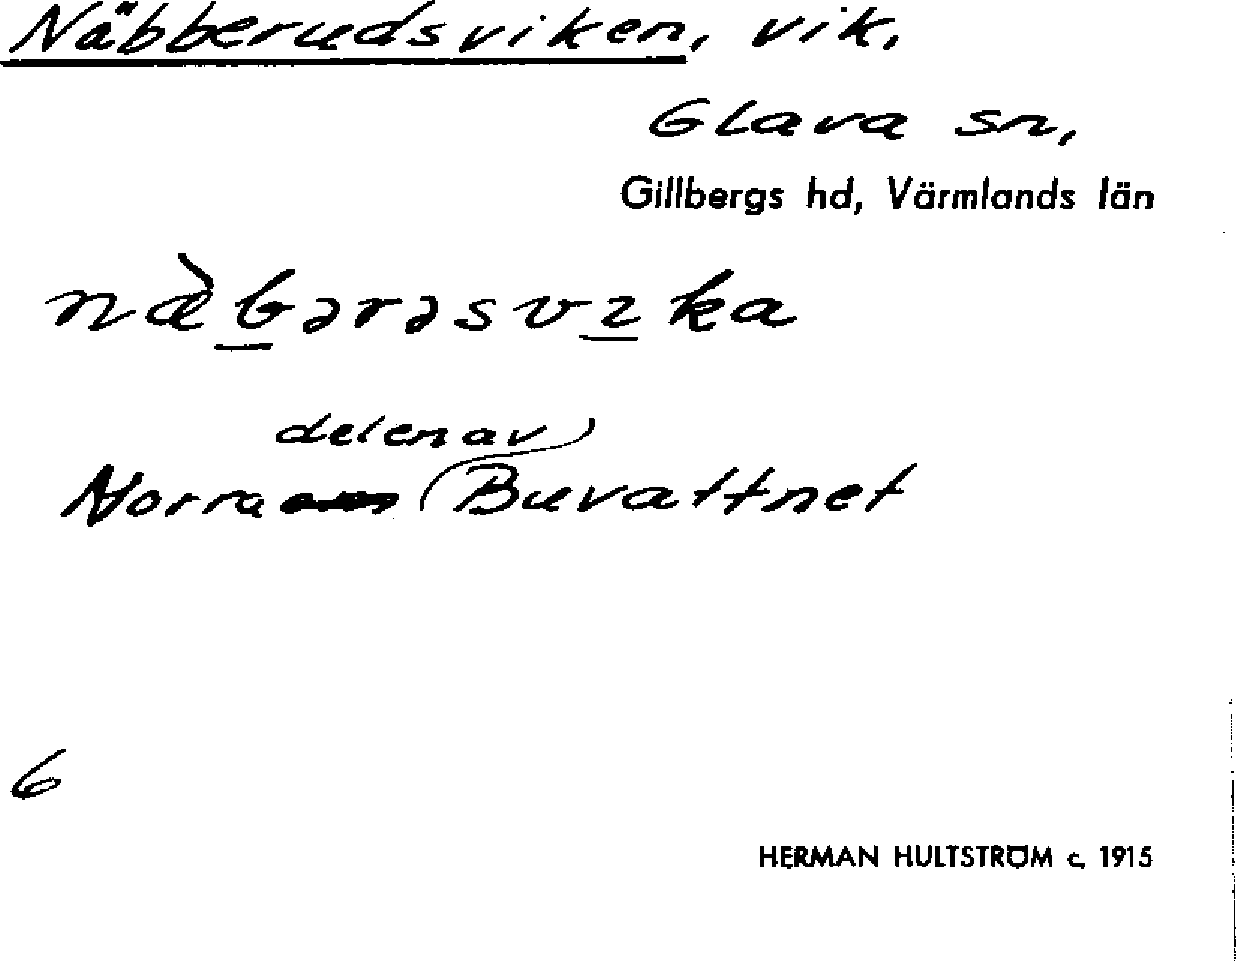 Näbberudsviken, vik,
Glava sn,
Gillbergs hd, Värmlands län
næ̀b̲ərəsvı̲ka
Norra delen av Buvattnet
6
HERMAN HULTSTRÖM c. 1915